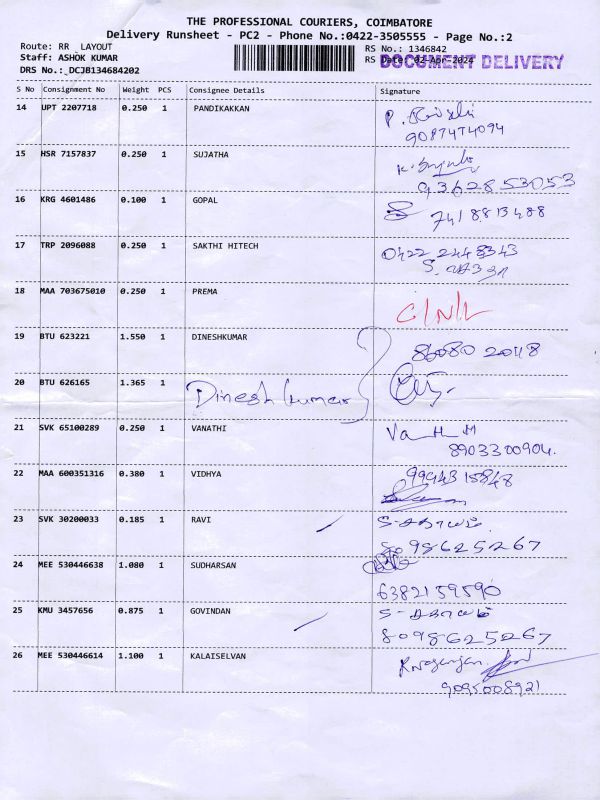 THE PROFESSIONAL COURIERS, COIMBATORE
Delivery Runsheet - PC2 - Phone No.:0422-3505555 - Page No.:2
Route: RR LAYOUT RS No.: 1346842
Staff: ASHOK KUMAR RS Date: 02-Apr-2024 DOCUMENT DELIVERY
DRS No.: DCJB134684202
S No Consignment No Weight PCS Consignee Details Signature
14 UPT 2207718 0.250 1 PANDIKAKKAN P.
9087474094
15 HSR 7157837 0.250 1 SUJATHA
9362853053
16 KRG 4601486 0.100 1 GOPAL
7418813488
17 TRP 2096088 0.250 1 SAKTHI HITECH 0422 2448343
18 MAA 703675010 0.250 1 PREMA
C/N/L
19 BTU 623221 1.550 1 DINESHKUMAR
86080 2048
20 BTU 626165 1.365 1 Dinesh kumar
21 SVK 65100289 0.250 1 VANATHI
8903300904.
22 MAA 600351316 0.380 1 VIDHYA 9994315848
23 SVK 30200033 0.185 1 RAVI
8098625267
24 MEE 530446638 1.080 1 SUDHARSAN
6382159590
25 KMU 3457656 0.875 1 GOVINDAN
8098625267
26 MEE 530446614 1.100 1 KALAISELVAN
9095008921